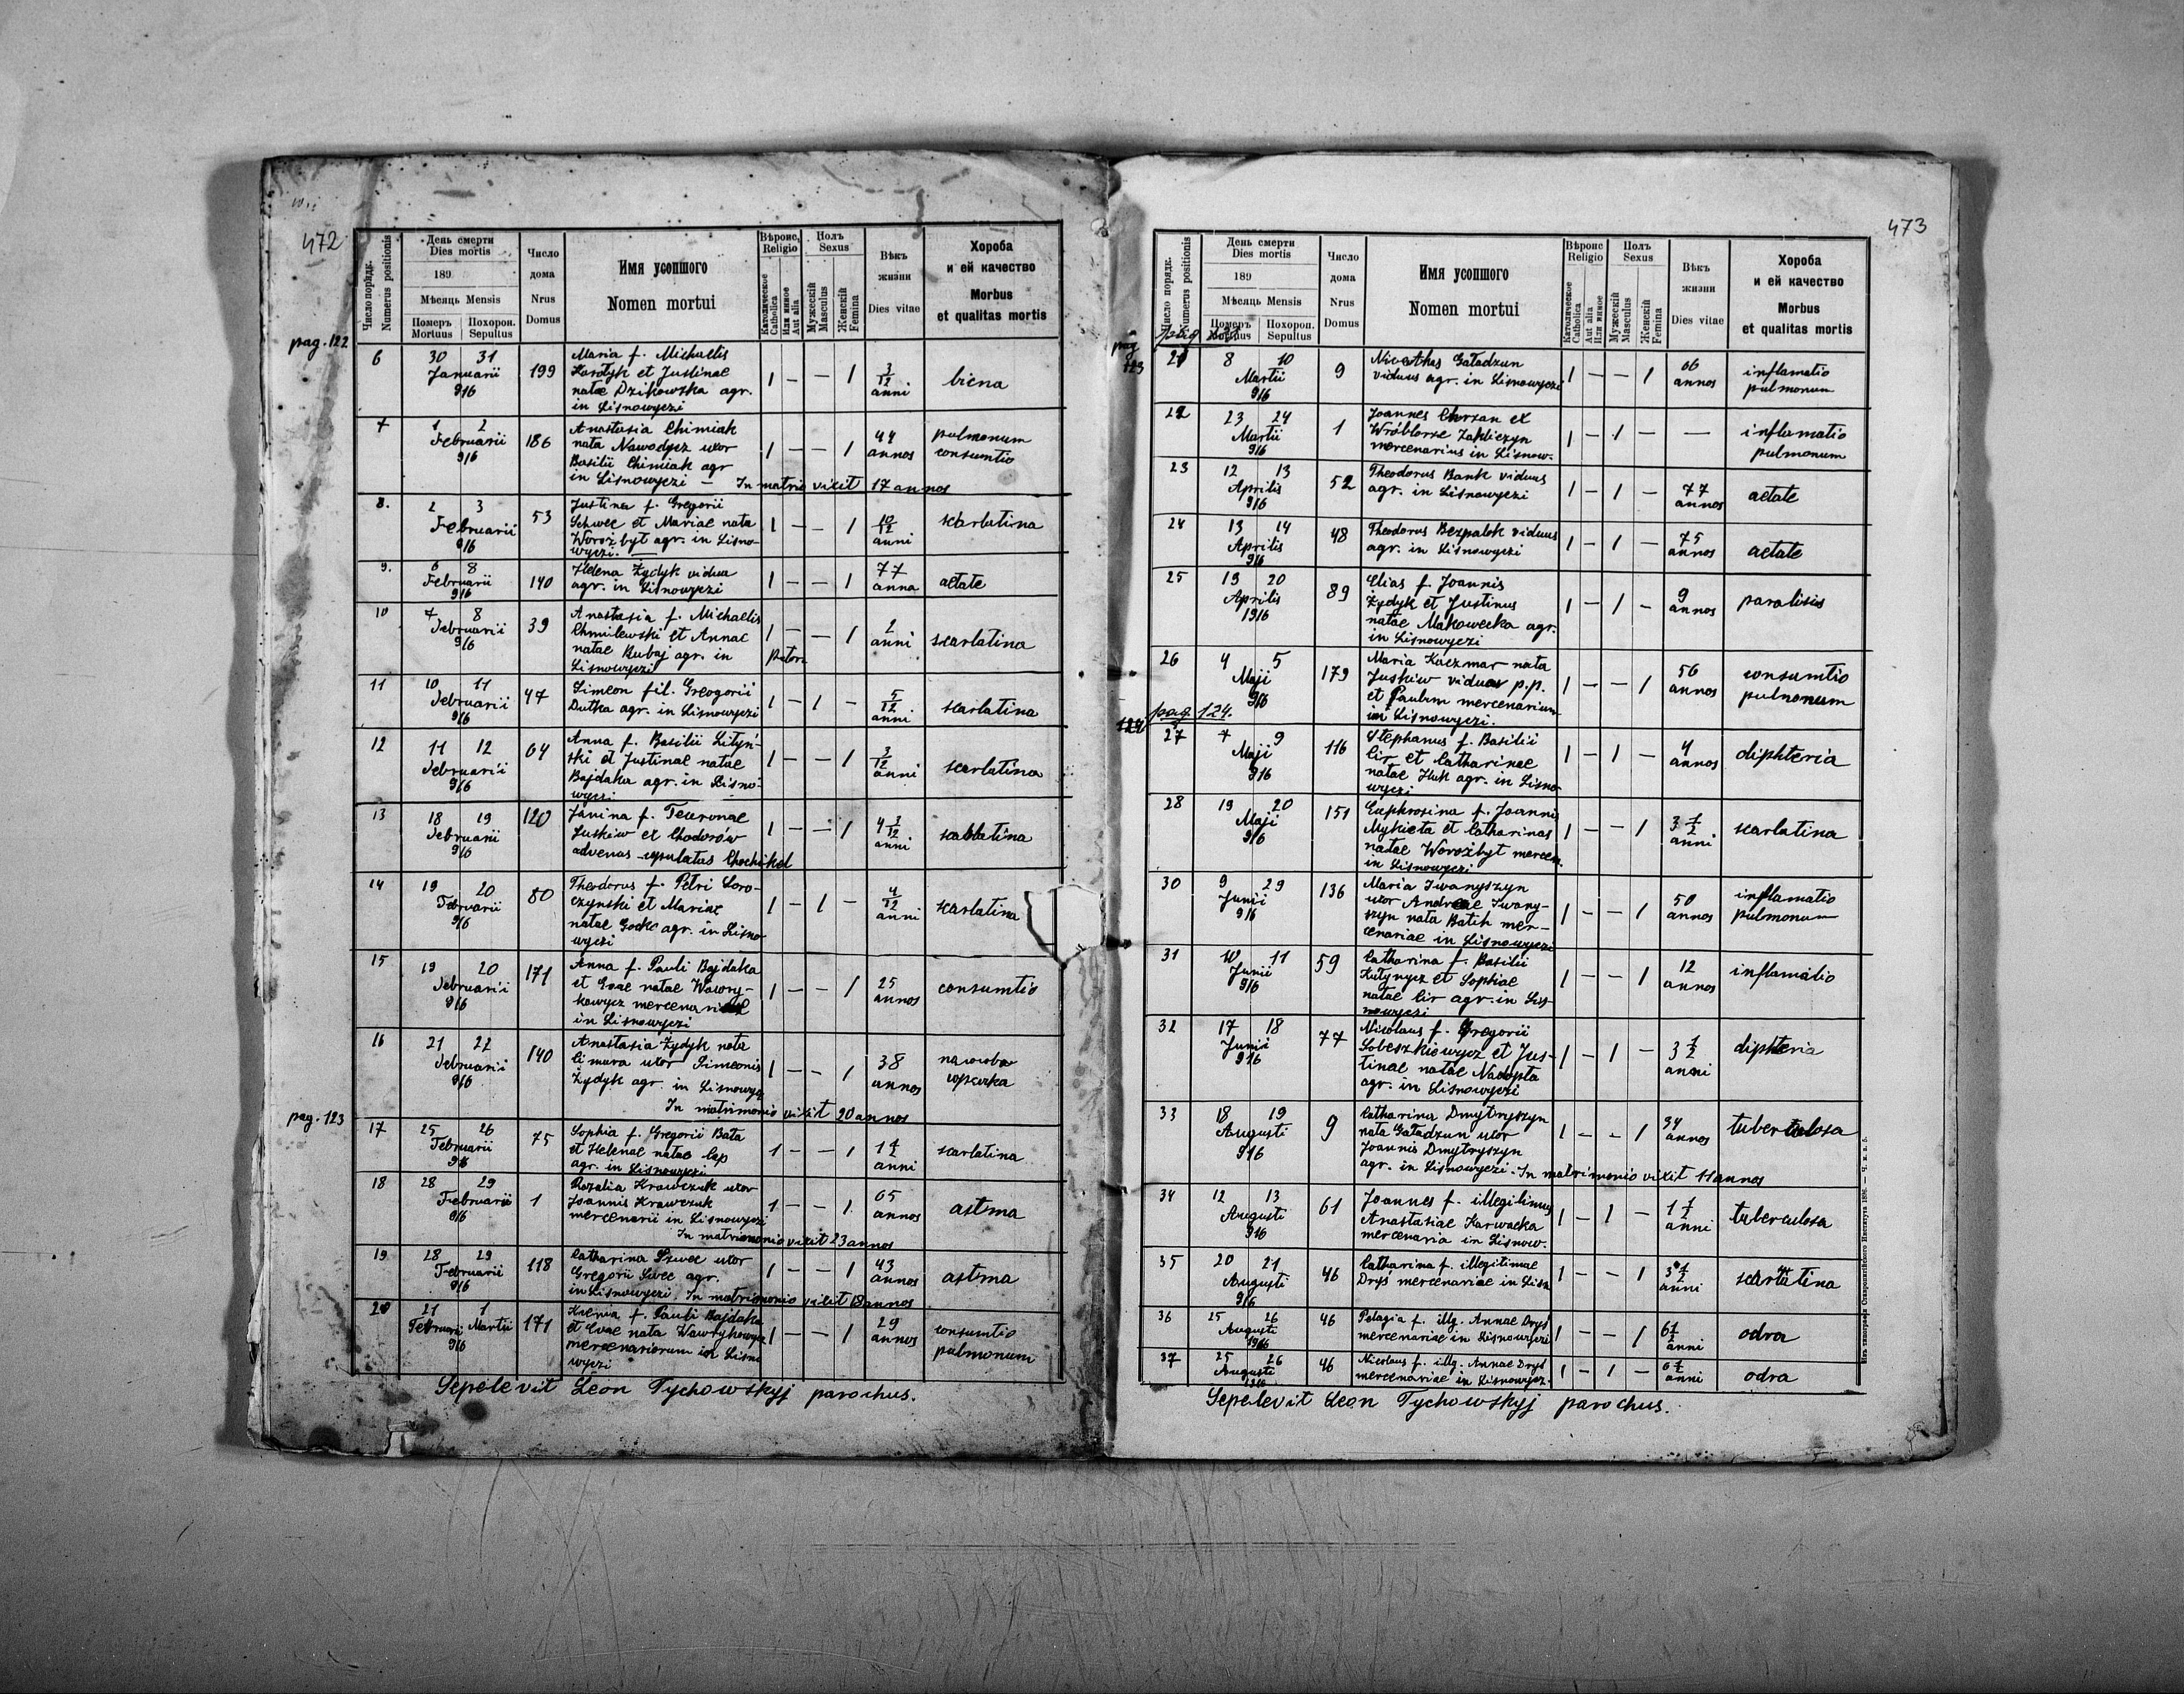 472
Число порядк. Numerus positionis
День смерти
Dies mortis
189
Мѣсяць Mensis
Померъ Mortuus
Похорон. Sepultus
Число дома
Nrus Domus
Имя усопшого
Nomen mortui
Вѣроис. Religio
Католическое Catholica
Или иное Aut alia
Полъ Sexus
Мужескій Masculus
Женскій Femina
Вѣкъ жизни
Dies vitae
Хороба и ей качество
Morbus et qualitas mortis
pag. 122
6 30 31 Januarii 916 199
Maria f. Michaelis
et Justinae
natae Dzikowska agr.
in Lisnowyczi
1 – – 1 3/12 anni
7 1 2 Februarii 916 186
Anastasia Chimiak
nata Nawodycz uxor
Basilii Chimiak agr
in Lisnowyczi – In matrio vixit 17 annos
1 – – 1 44 annos pulmonum consumtio
8. 2 3 Februarii 916 53
Justina f. Gregorii
Schwec et Mariae nata
Worożbyt agr. in Lisno-
wyczi.
1 – – 1 10/12 anni scarlatina
9. 6 8 Februarii 916 140
Helena Żydyk vidua
agr. in Lisnowyczi
1 – – 1 77 anna aetate
10 7 8 Februarii 916 39
Anastasia f. Michaelis
Chmilewski et Annae
natae Bubaj agr. in
Lisnowyczi
1 – – 1 2 anni scarlatina
11 10 11 Februarii 916 47
Simeon fil. Greogorii
Dutka agr. in Lisnowyczi
1 – 1 – 5/12 anni scarlatina
12 11 12 Februarii 916 64
Anna f. Basilii Lityń-
ski et Justinae natae
Bajdaka agr. in Lisno-
wyczi
1 – – 1 3/12 anni scarlatina
13 18 19 Februarii 916 120
Janina f.
Juskiw et Chodorów
advenas
1 – – 1 4 3/12 anni
14 19 20 Februarii 916 80
Theodorus f. Petri Soro-
czynski et Mariae
natae Gocko agr. in Lisno
wyczi
1 – 1 – 4/12 anni scarlatina
15 19 20 Februarii 916 171
Anna f. Pauli Bajdaka
et Evae natae Wawry-
kowycz mercenariae
in Lisnowyczi
1 – – 1 25 annos consumtio
16 21 22 Februarii 916 140
Anastasia Żydyk nata
Cimura uxor Simeonis
Żydyk agr. in Lisnowycz
In matrimonio vixit 20 annos
1 – – 1 38 annos
pag. 123
17 25 26 Februarii 916 75
Sophia f. Gregorii Bata
et Helenae natae Cap
agr. in Lisnowyczi
1 – – 1 1 1/2 anni scarlatina
18 28 29 Februarii 916 1
Rozalia Krawczuk uxor
Joannis Krawczuk
mercenarii in Lisnowyczi
In matrimonio vixit 23 annos
1 – – 1. 65 annos astma
19 28 29 Februarii 916 118
Catharina Szwec uxor
Gregorii Swec agr.
in Lisnowyczi. In matrimonio vixit 18 annos
1 – – 1 43 annos astma
20 21 Februarii 1 Martii 916 171
Ksenia f. Pauli Bajdaka
et Evae nata Wawrykowycz
mercenariorum in Lisno
wyczi
1 – – 1 29 annos consumtio pulmonum
Sepelevit Leon Tychowskyj parochus.
473
Число порядк. Numerus positionis
День смерти
Dies mortis
189
Мѣсяць Mensis
Померъ Mortuus
Похорон. Sepultus
Число дома
Nrus Domus
Имя усопшого
Nomen mortui
Вѣроис Religio
Католическое Catholica
Aut alia Или иное
Полъ Sexus
Мужескій Masculus
Женскій Femina
Вѣкъ жизни
Dies vitae
Хороба и ей качество
Morbus et qualitas mortis
pag 123
21 8 10 Martii 916 9
Gaładzun
viduus agr. in Lisnowyczi
1 – – 1 66 annos inflamatio pulmonum
22 23 24 Martii 916 1
Joannes Chrzan ex
Zakliczyn
mercenarius in Lisnow.
1 – 1 – — inflamatio pulmonum
23 12 13 Aprilis 916 52
Theodorus Bank viduus
agr. in Lisnowyczi
1 – 1 – 77 annos aetate
24 13 14 Aprilis 916 48
Theodorus Bezpalok viduus
agr. in Lisnowyczi
1 – 1 – 75 annos aetate
25 19 20 Aprilis 1916 89
Elias f. Joannis
Żydyk et Justinus
natae Makowecka agr.
in Lisnowyczi
1 – 1 – 9 annos paralisis
26 4 5 Maji 916 179
Maria Kaczmar nata
Juskiw vidua p.p.
et Paulum mercenarium
in Lisnowyczi.
1 – – 1 56 annos consumtio pulmonum
pag. 124.
27 7 9 Maji 916 116
Stephanus f. Basilii
Cir et Catharinae
natae Huk agr. in Lisno
wyczi
1 – 1 – 4 annos diphteria
28 19 20 Maji 916 151
Euphrosina f. Joannis
Mykieta et Catharinas
natae Worożbyt mercen.
in Lisnowyczi
1 – – 1 3 1/2 anni. scarlatina
30 9 29 Junii 916 136
Maria Iwanyszyn
uxor Andreae Iwany-
szyn nata Batih mer-
cenariae in Lisnowyczi
1 – – 1 50 annos inflamatio pulmonum
31 10 11 Junii 916 59
Catharina f. Basilii
et Sophiae
natae Cir agr. in Lis-
nowyczi
1 – – 1 12 annos inflamatio
32 17 18 Junii 916 77
Nicolaus f. Gregorii
Sobeszkiewycz et Jus-
tinae natae Nadopta
agr. in Lisnowyczi
1 – 1 – 3 1/2 anni diphteria
33 18 19 Augusti 916 9
Catharina Dmytryszyn
nata Gaładzun uxor
Joannis Dmytryszyn
agr. in Lisnowyczi. In matrimonio vixit 11 annos
1 – – 1 34 annos tuberculosa
34 12 13 Augusti 916 61
Joannes f. illegitimus
Anastasiae Karwacka
mercenaria in Lisnow.
1 – 1 – 1 1/2 anni tuberculosa
35 20 21 Augusti 916 46
Catharina f. illegitimae
Dryś mercenariae in Lisn
1 – – 1 3 1/2 anni scarlatina
36 25 26 Augusti 1916 46
Pelagia f. illg. Annae Dryś
mercenariae in Lisnowyczi
1 – – 1 6 1/2 anni odra
37 25 26 Augusti 1916 46
Nicolaus f. illg. Annae Dryś
mercenariae in Lisnowycz.
1 – 1 – 6 1/2 anni odra
Sepelevit Leon Tychowskyj parochus.
Изъ типографіи Ставропигійского Института 1896. — Ч. н. а. 5.